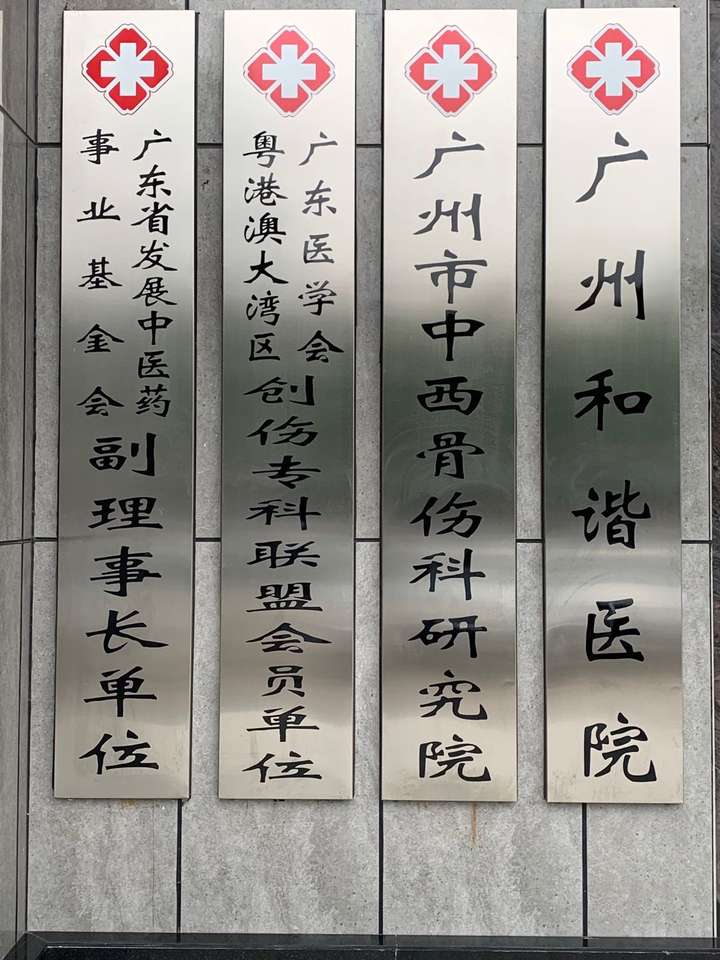 广州和谐医院
广州市中西骨伤科研究院
广东医学会
粤港澳大湾区
创伤专科联盟会员单位
广东省发展中医药
事业基金会
副理事长单位